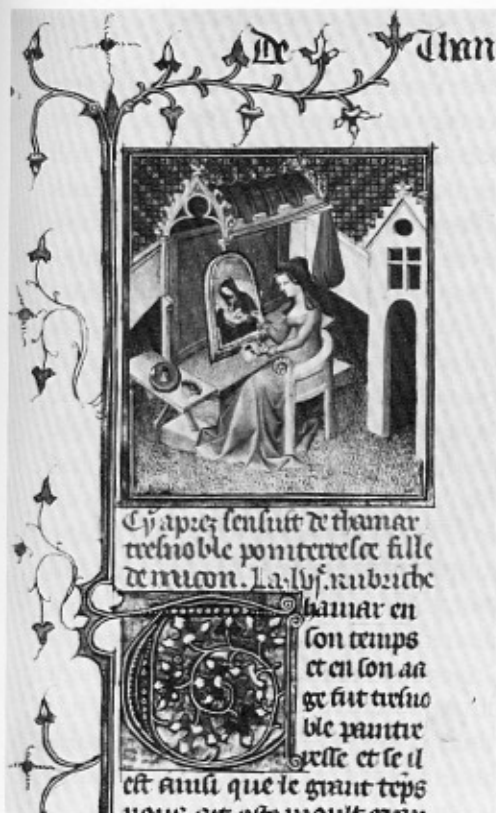 De Than
Cy aprez sensuit de thamar
tresnoble pointerresce fille
de micon. La .lvi. rubriche
Thamar en
son temps
et en son aa
ge fut tresno
ble paintre
resse et se il
est ainsi que le grant teps